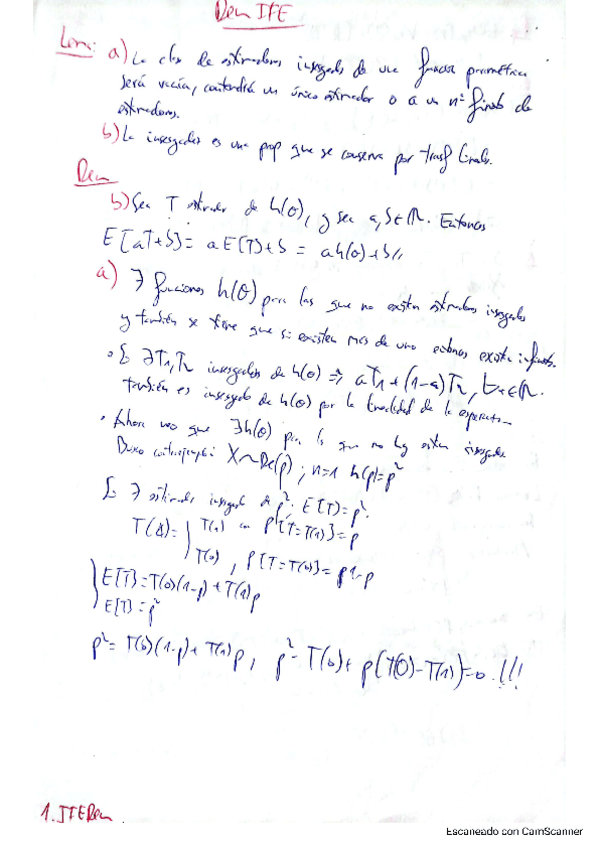 Dem ITE
Lema: a) La clase de estimadores insesgados de una función paramétrica
será vacía, contendrá un único estimador o a un nº finito de
estimadores.
b) La insesgadez es una prop que se conserva por trasf lineales.
Dem
b) Sea T estimador de h(θ), y sea a, b ∈ ℝ. Entonces
E[aT+b] = a E(T)+b = a h(θ)+b //
a) ∃ funciones h(θ) para las que no existen estimadores insesgados
y también se tiene que si existen mas de uno entonces existen infinitos.
• Si ∃ T₁, T₂ insesgados de h(θ) ⇒ aT₁ + (1-a)T₂, ∀a∈ℝ.
también es insesgado de h(θ) por la linealidad de la esperanza
• Ahora veo que ∃ h(θ) para la que no hay estim insesgado
Busco contraejemplo: X~Be(p); n=1 h(p)=p²
Si ∃ estimador insesgado de p²: E[T]=p².
T(X)= T(1) P[T=T(1)]=p
T(0), P[T=T(0)]= 1-p
E[T]=T(0)(1-p)+T(1)p
E[T]=p²
p²= T(0)(1-p)+T(1)p, p²-T(0)+p(T(0)-T(1))=0. !!!
1. ITEDem
Escaneado con CamScanner